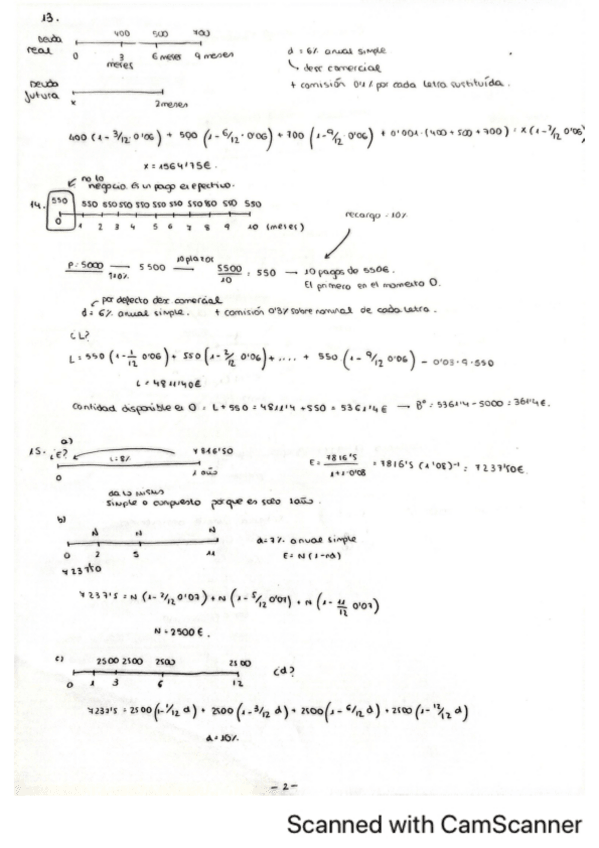 13.
Deuda real
400 500 700
0 3 meses 6 meses 9 meses
d = 6% anual simple
↳ desc comercial
+ comisión 0'1% por cada letra sustituída.
Deuda futura
x 2 meses
400 (1 - 3/12 · 0'06) + 500 (1 - 6/12 · 0'06) + 700 (1 - 9/12 · 0'06) + 0'001 · (400 + 500 + 700) = x (1 - 2/12 0'06)
x = 1564'75€.
no lo negocio. es un pago en efectivo.
14.
550 550 550 550 550 550 550 550 550 550
0 1 2 3 4 5 6 7 8 9 10 (meses)
recargo = 10%
P = 5000 → 5500 → 5500/10 = 550 → 10 pagos de 550€.
110% 10 plazos
El primero en el momento 0.
por defecto desc comercial
d = 6% anual simple. + comisión 0'3% sobre nominal de cada letra.
¿L?
L = 550 (1 - 1/12 0'06) + 550 (1 - 2/12 0'06) + .... + 550 (1 - 9/12 0'06) - 0'03 · 9 · 550
L = 4811'40€
Cantidad disponible en 0 = L + 550 = 4811'4 + 550 = 5361'4€ → Bº = 5361'4 - 5000 = 361'4€.
15. a)
¿E? i = 8% 7816'50
0 1 año
E = 7816'5 / 1 + 1·0'08 = 7816'5 (1'08)⁻¹ = 7237'50€.
da lo mismo
simple o compuesto porque es solo 1 año.
b)
N N N
0 2 5 11
7237'50
d = 7% anual simple
E = N (1 - nd)
7237'5 = N (1 - 2/12 0'07) + N (1 - 5/12 0'07) + N (1 - 11/12 0'07)
N = 2500€.
c)
2500 2500 2500 2500
0 1 3 6 12
¿d?
7237'5 = 2500 (1 - 1/12 d) + 2500 (1 - 3/12 d) + 2500 (1 - 6/12 d) + 2500 (1 - 12/12 d)
d = 10%
- 2 -
Scanned with CamScanner